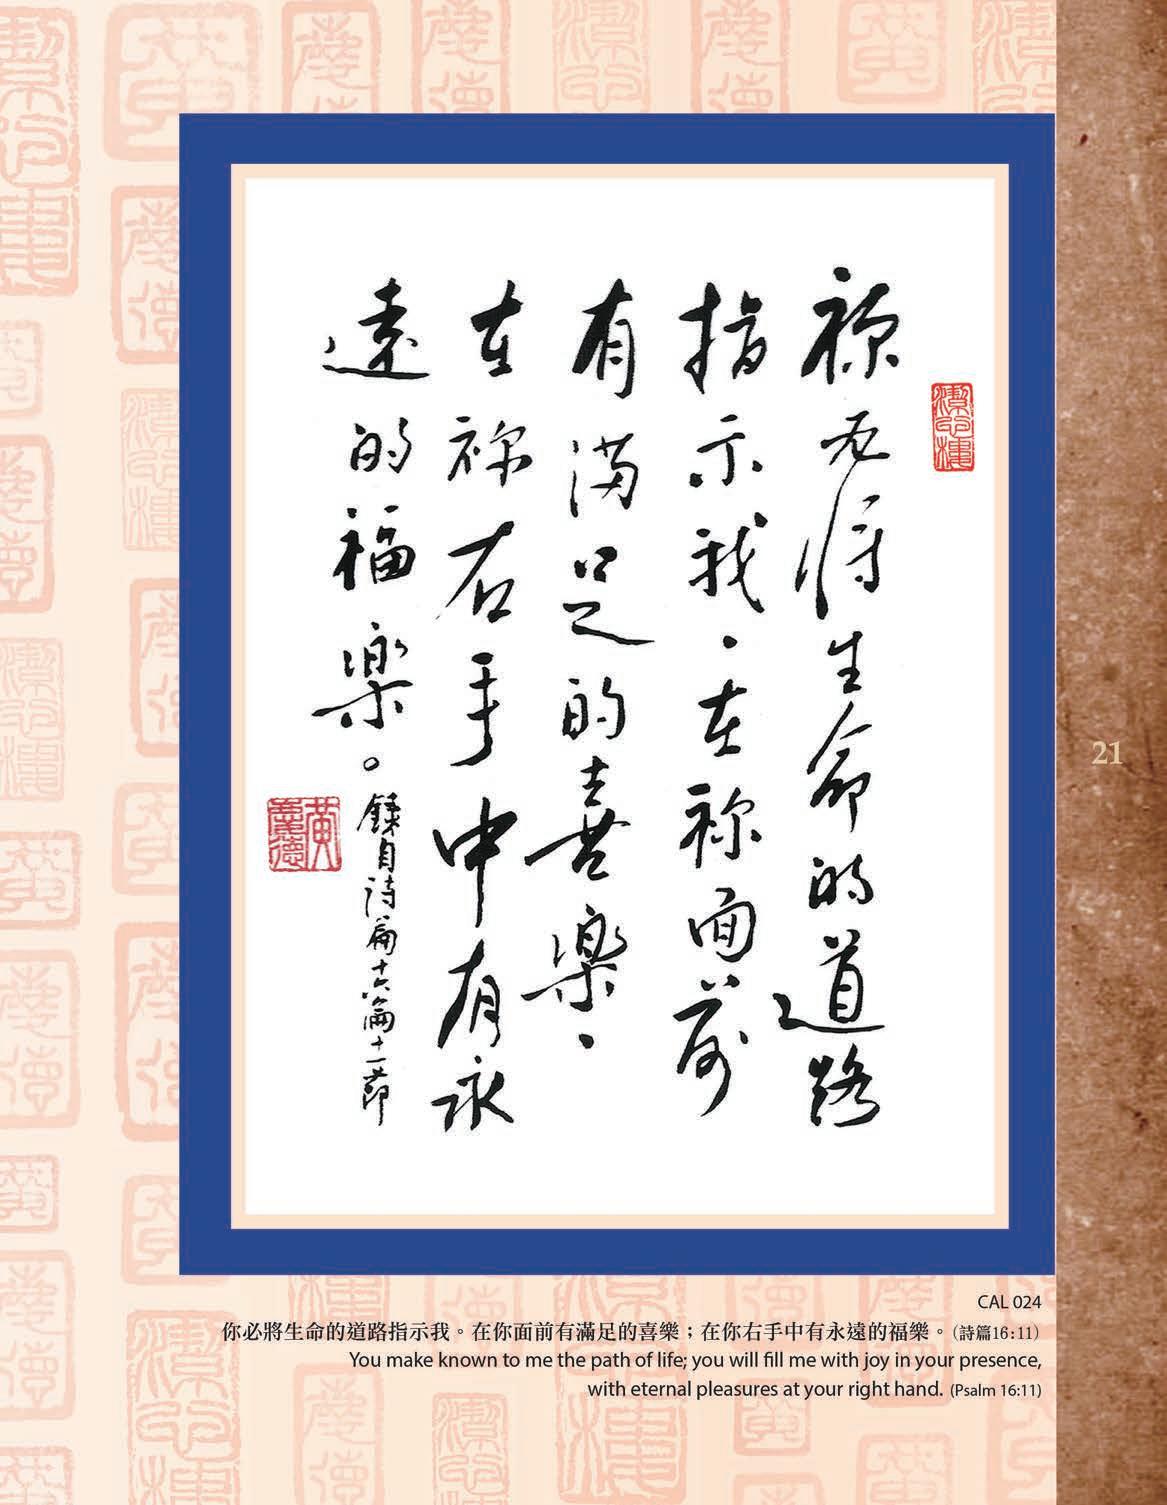 祢必将生命的道路
指示我、在祢面前
有滿足的喜樂、
在祢右手中有永
遠的福樂。錄自詩篇十六篇十一節
黃慶德
21
CAL 024
你必將生命的道路指示我。在你面前有滿足的喜樂；在你右手中有永遠的福樂。(詩篇16:11)
You make known to me the path of life; you will fill me with joy in your presence,
with eternal pleasures at your right hand. (Psalm 16:11)